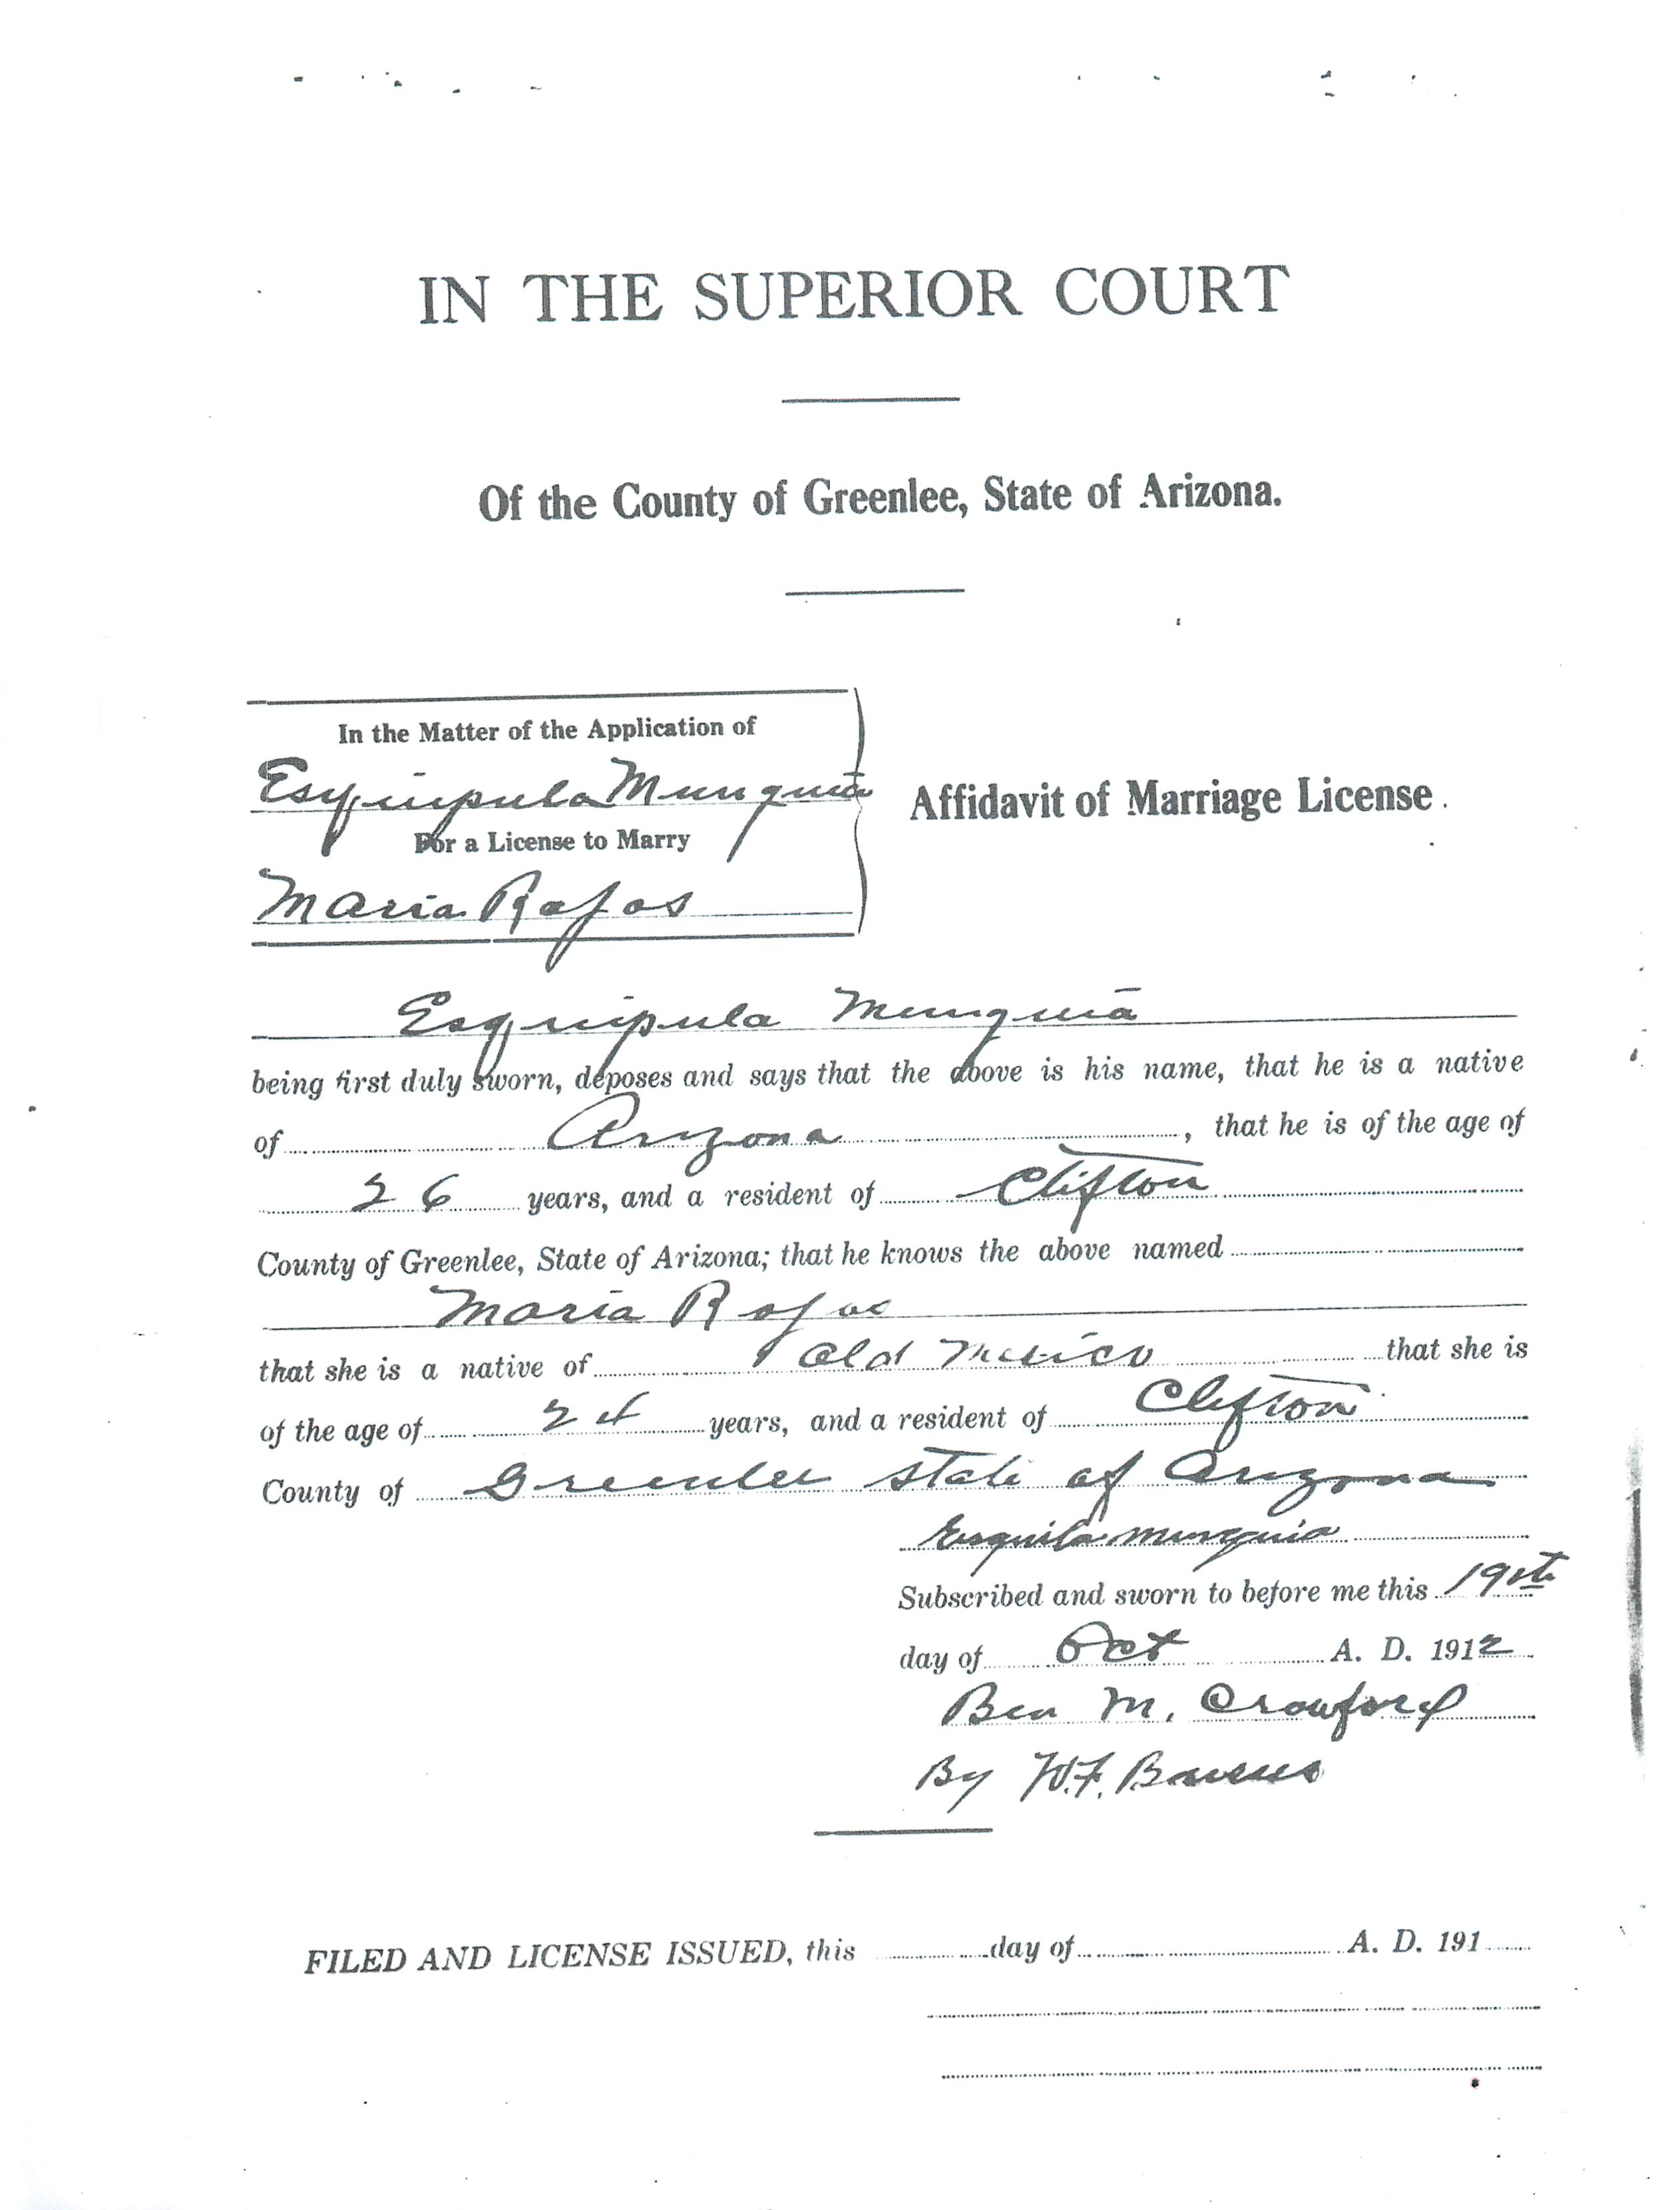 IN THE SUPERIOR COURT
Of the County of Greenlee, State of Arizona.
In the Matter of the Application of
Esquipula Munguia
For a License to Marry
Maria Rojas
Affidavit of Marriage License.
Esquipula Munguia
being first duly sworn, deposes and says that the above is his name, that he is a native
of Arizona, that he is of the age of
26 years, and a resident of Clifton
County of Greenlee, State of Arizona; that he knows the above named
Maria Rojas
that she is a native of Old Mexico that she is
of the age of 24 years, and a resident of Clifton
County of Greenlee State of Arizona
Munguia
Subscribed and sworn to before me this 19th
day of Oct A. D. 1912
Ben M. Crawford
By W.F.
FILED AND LICENSE ISSUED, this day of A. D. 191